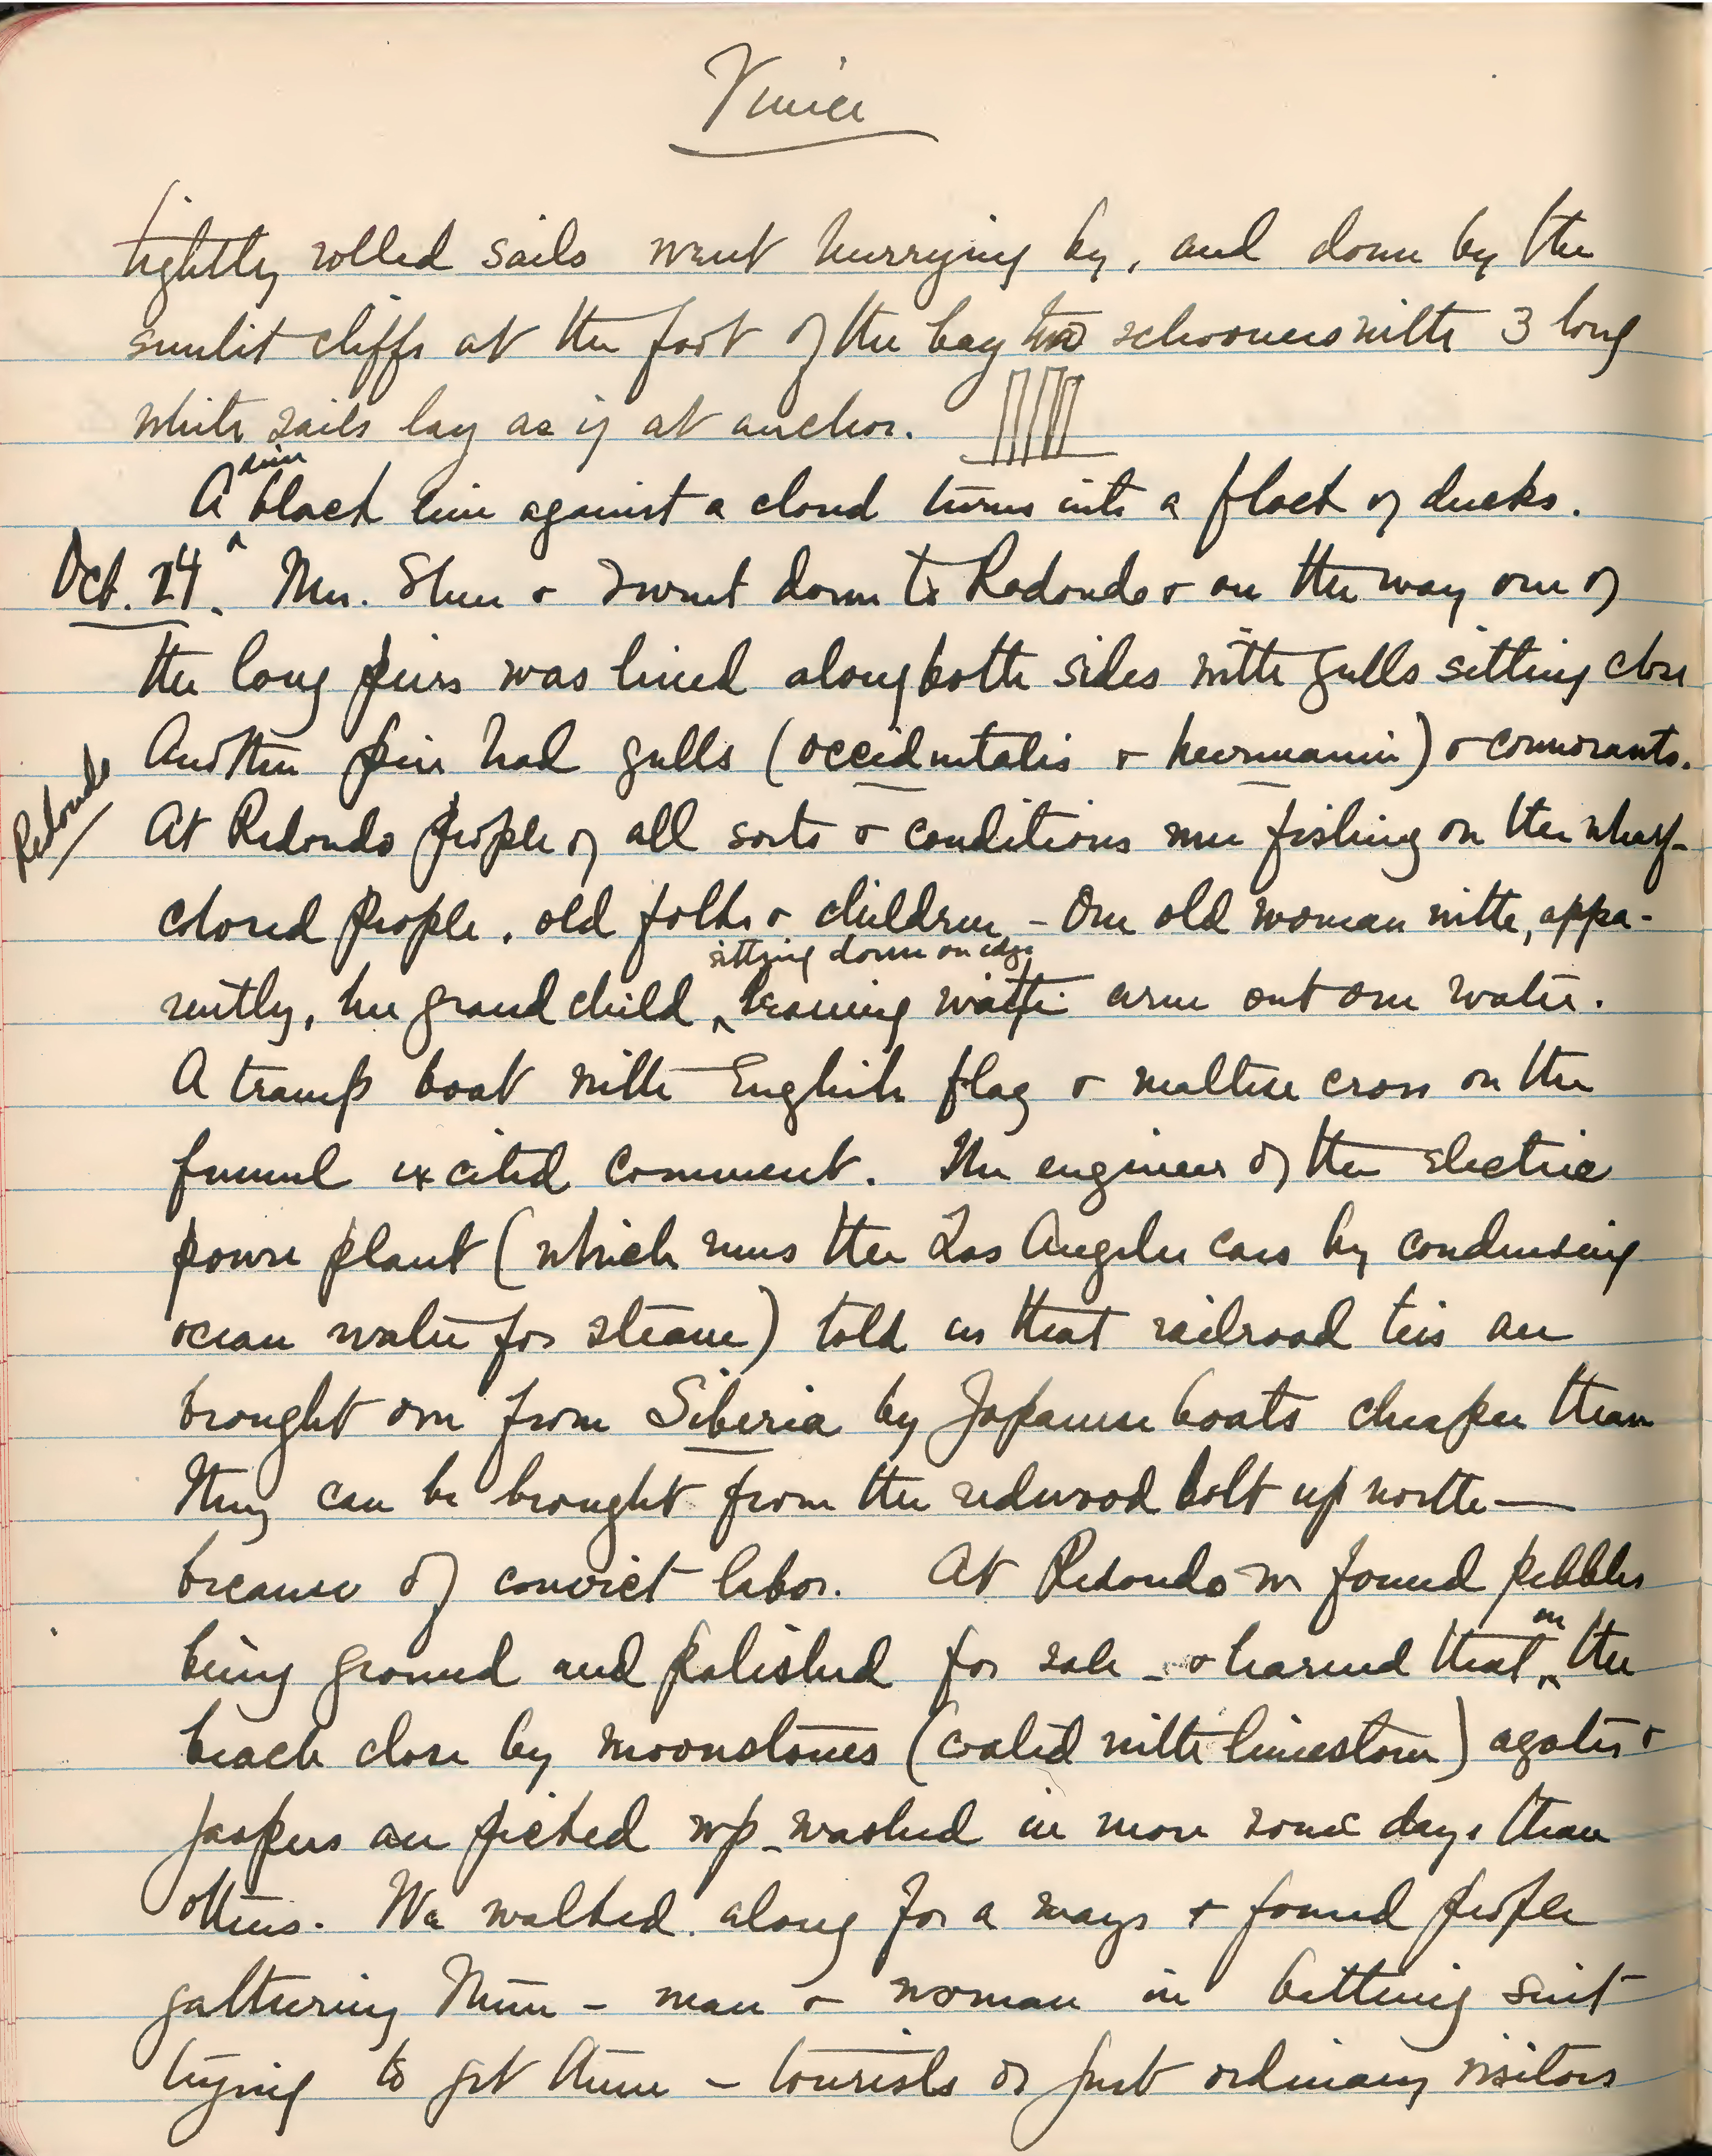 Venice
tightly rolled sails went hurrying by, and down by the
sunlit cliffs at the foot of the bay two schooners with 3 long
white sails lay as if at anchor.
A thin black line against a cloud turns into a flock of ducks.
Oct. 24. Mrs. & I went down to Redondo & on the way one of
the long piers was lined along both sides with gulls sitting close
Another pier had gulls (occidentalis & heermanni) & cormorants.
Redondo
At Redondo people of all sorts & conditions were fishing on the wharf -
colored people, old folks & children - One old woman with, appa-
rently, her grand child sitting down on edge leaning with arm out over water.
A tramp boat with English flag & maltese cross on the
funnel excited comment. The engineer of the electric
power plant (which runs the Los Angeles cars by condensing
ocean water for steam) told us that railroad ties are
brought over from Siberia by Japanese boats cheaper than
they can be brought from the redwood belt up north —
because of convict labor. At Redondo we found pebbles
being ground and polished for sale - & learned that on the
beach close by moonstones (coated with limestone) agates &
jaspers are picked up - washed in more some days than
others. We walked along for a ways & found people
gathering them - man & woman in bathing suit
trying to get them - tourists or just ordinary visitors